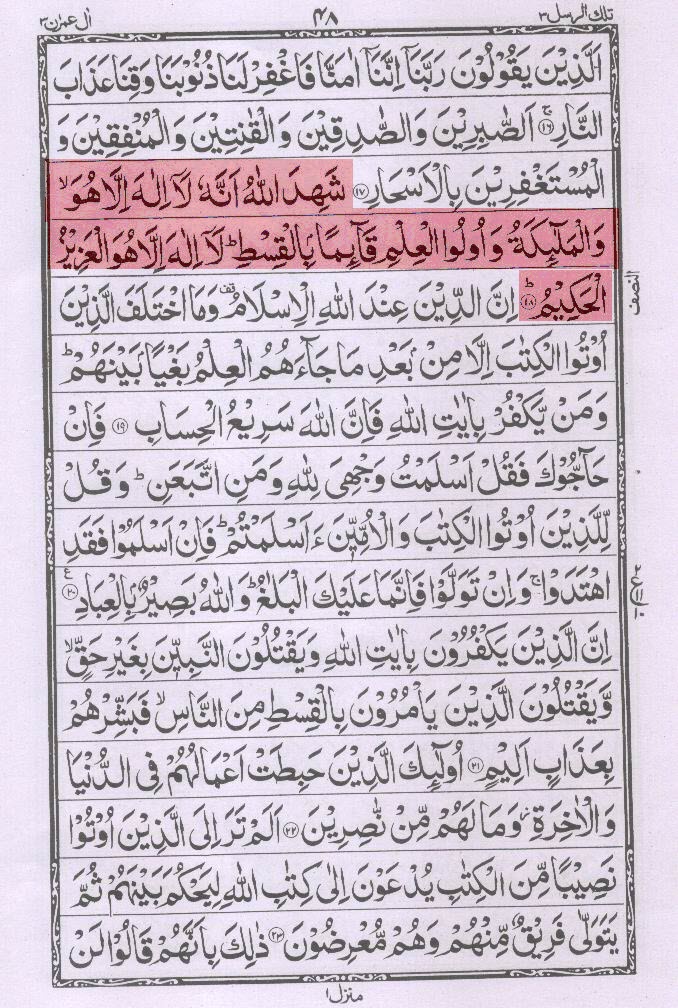 تلك الرسل ٣ ٤٨ ال عمرٰن ٣
اَلَّذِيْنَ يَقُوْلُوْنَ رَبَّنَاۤ اِنَّنَاۤ اٰمَنَّا فَاغْفِرْلَنَا ذُنُوْبَنَا وَقِنَا عَذَابَ
النَّارِۚ‏﴿۱۶﴾ اَلصّٰبِرِيْنَ وَالصّٰدِقِيْنَ وَالْقٰنِتِيْنَ وَالْمُنْفِقِيْنَ وَ
الْمُسْتَغْفِرِيْنَ بِالْاَسْحَارِ﴿۱۷﴾ شَهِدَ اللّٰهُ اَنَّهٗ لَاۤ اِلٰهَ اِلَّا هُوَۙ
وَالْمَلٰٓئِكَةُ وَاُولُوا الْعِلْمِ قَآئِمًاۢ بِالْقِسْطِؕ لَاۤ اِلٰهَ اِلَّا هُوَ الْعَزِيْزُ
الْحَكِيْمُؕ﴿۱۸﴾ اِنَّ الدِّيْنَ عِنْدَ اللّٰهِ الْاِسْلَامُࣞ وَمَا اخْتَلَفَ الَّذِيْنَ
النصف
اُوْتُوا الْكِتٰبَ اِلَّا مِنْۢ بَعْدِ مَا جَآءَهُمُ الْعِلْمُ بَغْيًاۢ بَيْنَهُمْؕ
وَمَنْ يَّكْفُرْ بِاٰيٰتِ اللّٰهِ فَاِنَّ اللّٰهَ سَرِيْعُ الْحِسَابِ﴿۱۹﴾ فَاِنْ
حَآجُّوْكَ فَقُلْ اَسْلَمْتُ وَجْهِىَ لِلّٰهِ وَمَنِ اتَّبَعَنِؕ وَقُلْ
لِّلَّذِيْنَ اُوْتُوا الْكِتٰبَ وَالْاُمِّيّٖنَ ءَاَسْلَمْتُمْؕ فَاِنْ اَسْلَمُوْا فَقَدِ
اهْتَدَوْاۚ وَاِنْ تَوَلَّوْا فَاِنَّمَا عَلَيْكَ الْبَلٰغُؕ وَاللّٰهُ بَصِيْرٌۢ بِالْعِبَادِ﴿۲۰﴾ع
اِنَّ الَّذِيْنَ يَكْفُرُوْنَ بِاٰيٰتِ اللّٰهِ وَيَقْتُلُوْنَ النَّبِيّٖنَ بِغَيْرِ حَقٍّۙ
وَّيَقْتُلُوْنَ الَّذِيْنَ يَاْمُرُوْنَ بِالْقِسْطِ مِنَ النَّاسِۙ فَبَشِّرْهُمْ
بِعَذَابٍ اَلِيْمٍ﴿۲۱﴾ اُولٰٓئِكَ الَّذِيْنَ حَبِطَتْ اَعْمَالُهُمْ فِى الدُّنْيَا
وَالْاٰخِرَةِؗ وَمَا لَهُمْ مِّنْ نّٰصِرِيْنَ﴿۲۲﴾ اَلَمْ تَرَ اِلَى الَّذِيْنَ اُوْتُوْا
نَصِيْبًا مِّنَ الْكِتٰبِ يُدْعَوْنَ اِلٰى كِتٰبِ اللّٰهِ لِيَحْكُمَ بَيْنَهُمْ ثُمَّ
يَتَوَلّٰى فَرِيْقٌ مِّنْهُمْ وَهُمْ مُّعْرِضُوْنَ﴿۲۳﴾ ذٰلِكَ بِاَنَّهُمْ قَالُوْا لَنْ
منزل ۱